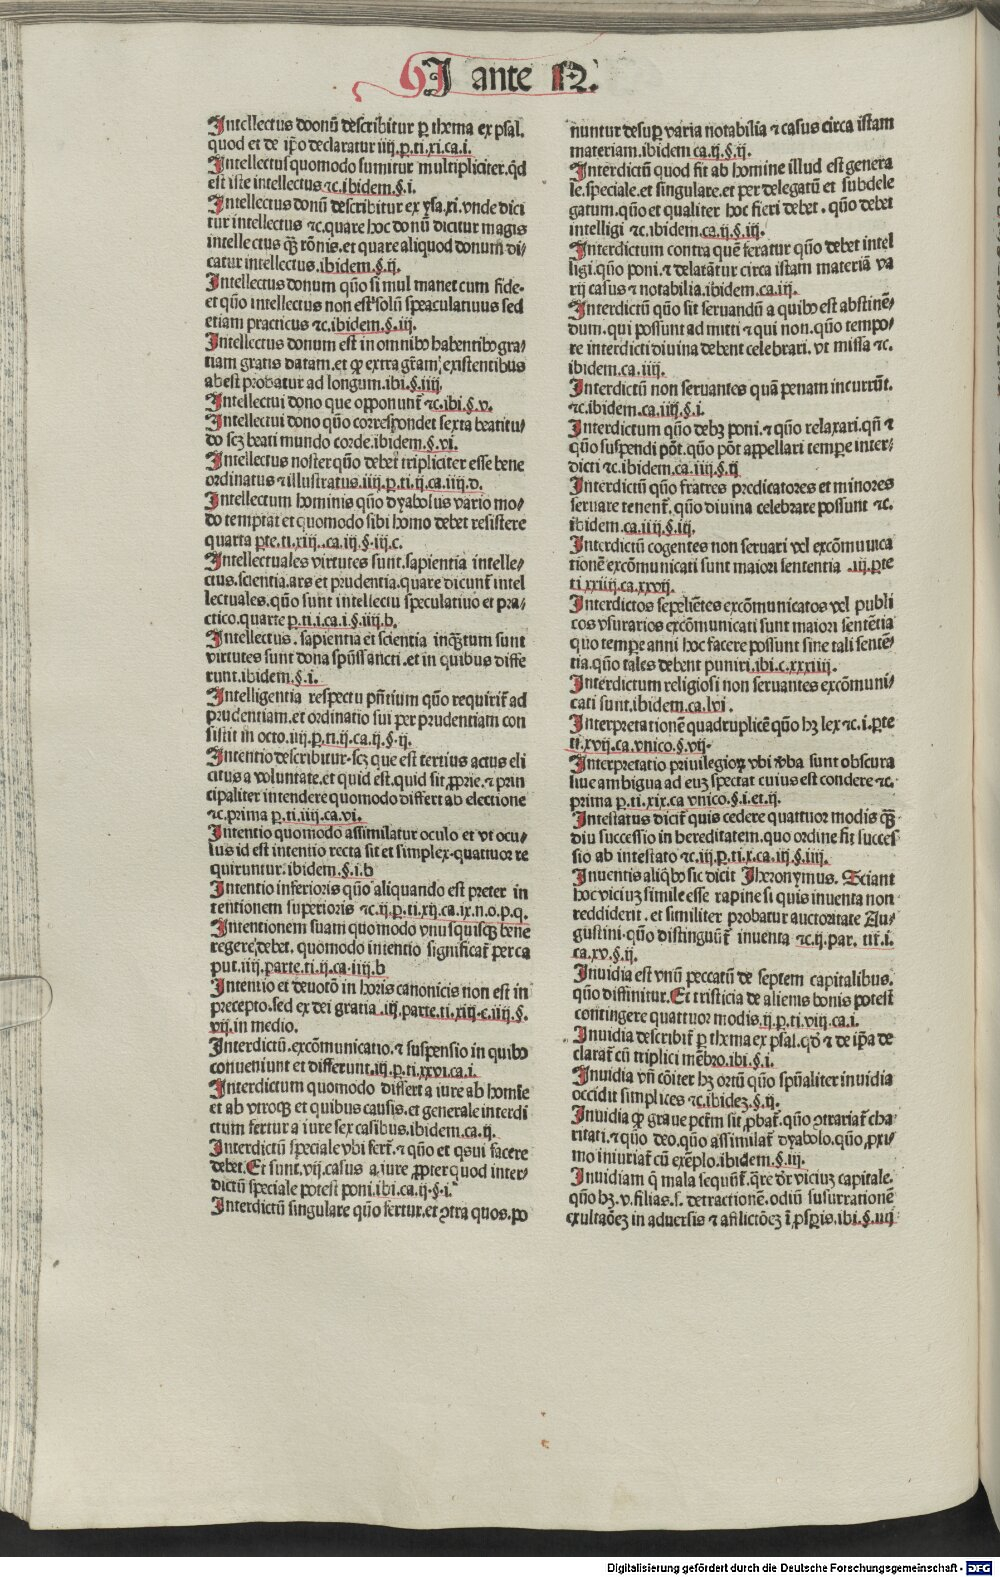 I ante N.
Intellectus donū describitur p̱ thema ex psal.
quod et de ip̄o declaratur iiij.p̱.ti.xi.ca.i.
Intellectus quomodo sumitur multipliciter.q̇d
est iste intellectus ⁊c.ibidem.§.i.
Intellectus donū describitur ex ysa.xi.vnde dici
tur intellectus ⁊c.quare hoc donū dicitur magis
intellectus q̄ꝫ rōnis.et quare aliquod donum di⸗
catur intellectus.ibidem.§.ij.
Intellectus donum quō simul manet cum fide.
et quō intellectus non est solū speaculatiuus sed
etiam practicus ⁊c.ibidem.§.iij.
Intellectus donum est in omnibꝰ habentibꝰ gra⸗
tiam gratis datam.et ꝙ extra grām existentibus
abest probatur ad longum.ibi.§.iiij.
Intellectui dono que opponunt̄ ⁊c.ibi.§.v.
Intellectui dono quō correspondet sexta beatitu⸗
do scꝫ beati mundo corde.ibidem.§.vi.
Intellectus noster quō debet tripliciter esse bene
ordinatus ⁊ illustratus.iiij.p̱.ti.ij.ca.iiij.d.
Intellectum hominis quō dyabolus vario mo⸗
do temptat et quomodo sibi homo debet resistere
quarta p̱te.ti.xiij..ca.iij.§.iij.c.
Intellectuales virtutes sunt.sapientia intelle⸗
ctus.scientia.ars et prudentia.quare dicunt̄ intel
lectuales.quō sunt intellectu speculatiuo et pra⸗
ctico.quarte p̱.ti.i.ca.i.§.iiij.b.
Intellectus. sapientia et scientia inq̄ꝫtum sunt
virtutes sunt dona spūssancti.et in quibus diffe
runt.ibidem.§.i.
Intelligentia respectu pn̄tium quō requirit̄ ad
prudentiam.et ordinatio sui per prudentiam con
sistit in octo.iiij.p̱.ti.ij.ca.ij.§.ij.
Intentio describitur.scꝫ que est tertius actus eli
citus a voluntate.et quid est.quid sit ꝓprie.⁊ prin
cipaliter intendere quomodo differt ab electione
⁊c.prima p̱.ti.iiij.ca.vi.
Intentio quomodo assimilatur oculo et vt ocu⸗
lus id est intentio recta sit et simplex.quattuor re
quiruntur.ibidem.§.i.b
Intentio inferioris quō aliquando est preter in
tentionem superioris ⁊c.ij.p̱.ti.xij.ca.ix.n.o.p.q.
Intentionem suam quomodo vnusquisqꝫ bene
regere debet. quomodo intentio significat̄ per ca
put.iiij.parte.ti.ij.ca.iiij.b
Intentio et deuotō in horis canonicis non est in
precepto.sed ex dei gratia.iij.parte.ti.xiij.c.iiij.§.
vij.in medio.
Interdictū.excōmunicatio.⁊ suspensio in quibꝰ
conueniunt et differunt.iij.p̱.ti.xxvi.ca.i.
Interdictum quomodo differt a iure ab homīe
et ab vtroqꝫ et quibus causis.et generale interdi
ctum fertur a iure sex casibus.ibidem.ca.ij.
Interdictū speciale vbi fert̄.⁊ quō et qsui facere
debet.Et sunt.vij.casus a iure ꝓpter quod inter⸗
dictū speciale potest poni.ibi.ca.ij.§.i.
Interdictū singulare quō fertur.et ꝯtra quos.po
nuntur desup̱ varia notabilia ⁊ casus circa istam
materiam.ibidem ca.ij.§.ij.
Interdictū quod fit ab homine illud est genera
le.speciale.et singulare.et per delegatū et subdele
gatum.quō et qualiter hoc fieri debet.quō debet
intelligi ⁊c.ibidem.ca.ij.§.iij.
Interdictum contra quē feratur quō debet intel
ligi.quō poni.⁊ declarātur circa istam materiā va
rij casus ⁊ notabilia.ibidem.ca.iij.
Interdictū quō sit seruandū a quibꝰ est abstinē⸗
dum.qui possunt admitti ⁊ qui non.quō tempo⸗
re interdicti diuina debent celebrari.vt missa ⁊c.
ibidem.ca.iiij.
Interdictū non seruantes quā penam incurrūt.
⁊c.ibidem.ca.iiij.§.i.
Interdictum quō debꝫ poni.⁊ quō relaxari.qn̄ ⁊
quō suspendi pōt.quō pōt appellari temp̱e inter⸗
dicti ⁊c.ibidem.ca.iiij.§.ij
Interdictū quō fratres predicatores et minores
seruare tenent̄.quō diuina celebrare possunt ⁊c.
ibidem.ca.iiij.§.iij.
Interdictū cogentes non seruari vel excōmunica
tionē excōmunicati sunt maiori sententia .iij.p̱te
ti.xxiiij.ca.xxvij.
Interdictos sepeliētes excōmunicatos vel publi
cos vsurarios excōmunicati sunt maiori sentētia
quo temp̱e anni hoc facere possunt sine tali sentē⸗
tia.quō tales debent puniri.ibi.c.xxxiiij.
Interdictum religiosi non seruantes excōmuni⸗
cati sunt.ibidem.ca.lvi.
Interpretationē quadruplicē quō hꝫ lex ⁊c.i.p̱te
ti.xvij.ca.vnico.§.vij.
Interpretatio priuilegioꝝ vbi v̄ba sunt obscura
siue ambigua ad eum spectat cuius est condere ⁊c.
prima p̱.ti.xix.ca vnico.§.i.et.ij.
Intestatus dicit̄ quis cedere quattuor modis q̄ꝫ
diu successio in hereditatem.quo ordine fit succes⸗
sio ab intestato ⁊c.iij.p̱.ti.x.ca.iij.§.iiij.
Inuentis aliq̇bꝰ sic dicit Jheronymus. Sciant
hoc viciuꝫ simile esse rapine si quis inuenta non
reddiderit.et similiter probatur auctoritate Au⸗
gustini.quō distinguūt̄ inuenta ⁊c.ij.par. tit̄.i.
ca.xv.§.ij.
Inuidia est vnū peccatū de septem capitalibus.
quō diffinitur.Et tristicia de alienis bonis potest
contingere quattuor modis.ij.p̱.ti.viij.ca.i.
Inuidia describit̄ p̱ thema ex psal.qd̄ ⁊ de ip̄a de
clarat̄ cū triplici mēbro.ibi.§.i.
Inuidia vn̄ cōiter hꝫ ortū quō spūaliter inuidia
occidit simplices ⁊c.ibideꝫ.§.ij.
Inuidia ꝙ graue pctm̄ sit ꝓbat̄.quō ꝯtrariat̄ cha
ritati.⁊ quō deo.quō assimilat̄ dyabolo.quō ꝓxi⸗
mo iniuriat̄ cū exēplo.ibidem.§.iij.
Inuidiam q̄ mala sequūt̄.q̄re dr̄ viciuꝫ capitale.
quō hꝫ.v.filias.s.detractionē.odiū susurrationē
exultatōeꝫ in aduersis ⁊ afflictōeꝫ ī ꝓsp̱is.ibi.§.iiij
Digitalisierung gefördert durch die Deutsche Forschungsgemeinschaft - DFG